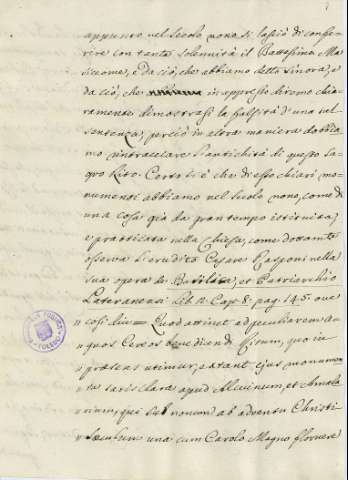 appunto nel secolo nono si lasciò di confe-
rire con tanta solennità il Battesimo. Ma
siccome, e da ciò, che abbiamo detto sinora, e
da ciò, che in appresso diremo chia-
ramente dimostrasi la falsità d'una tal
sentenza, perciò in altra maniera dobbia-
mo rintracciare l'antichità di questo Sa-
gro Rito. Certo si è che di esso chiari mo-
numenti abbiamo nel Secolo nono, come di
una cosa già da gran tempo istituita,
e pratticata nella Chiesa, come dottamte
osserva l'erudito Cesare Rasponi nella
sua opera de Basilica, et Patriarchio
Lateranensi Lib. Cap. 8. pag. 145. ove
" così Quod attinet ad peculiarem A-
" gnos Cereos benedicendi Ritum, quo in
" præsens utimur, extant ejus monumen-
" ta satis clara apud Alcuinum, et Amala-
" rium, qui nonum ab adventu Christi
" Sæculum una cum Carolo Magno florere